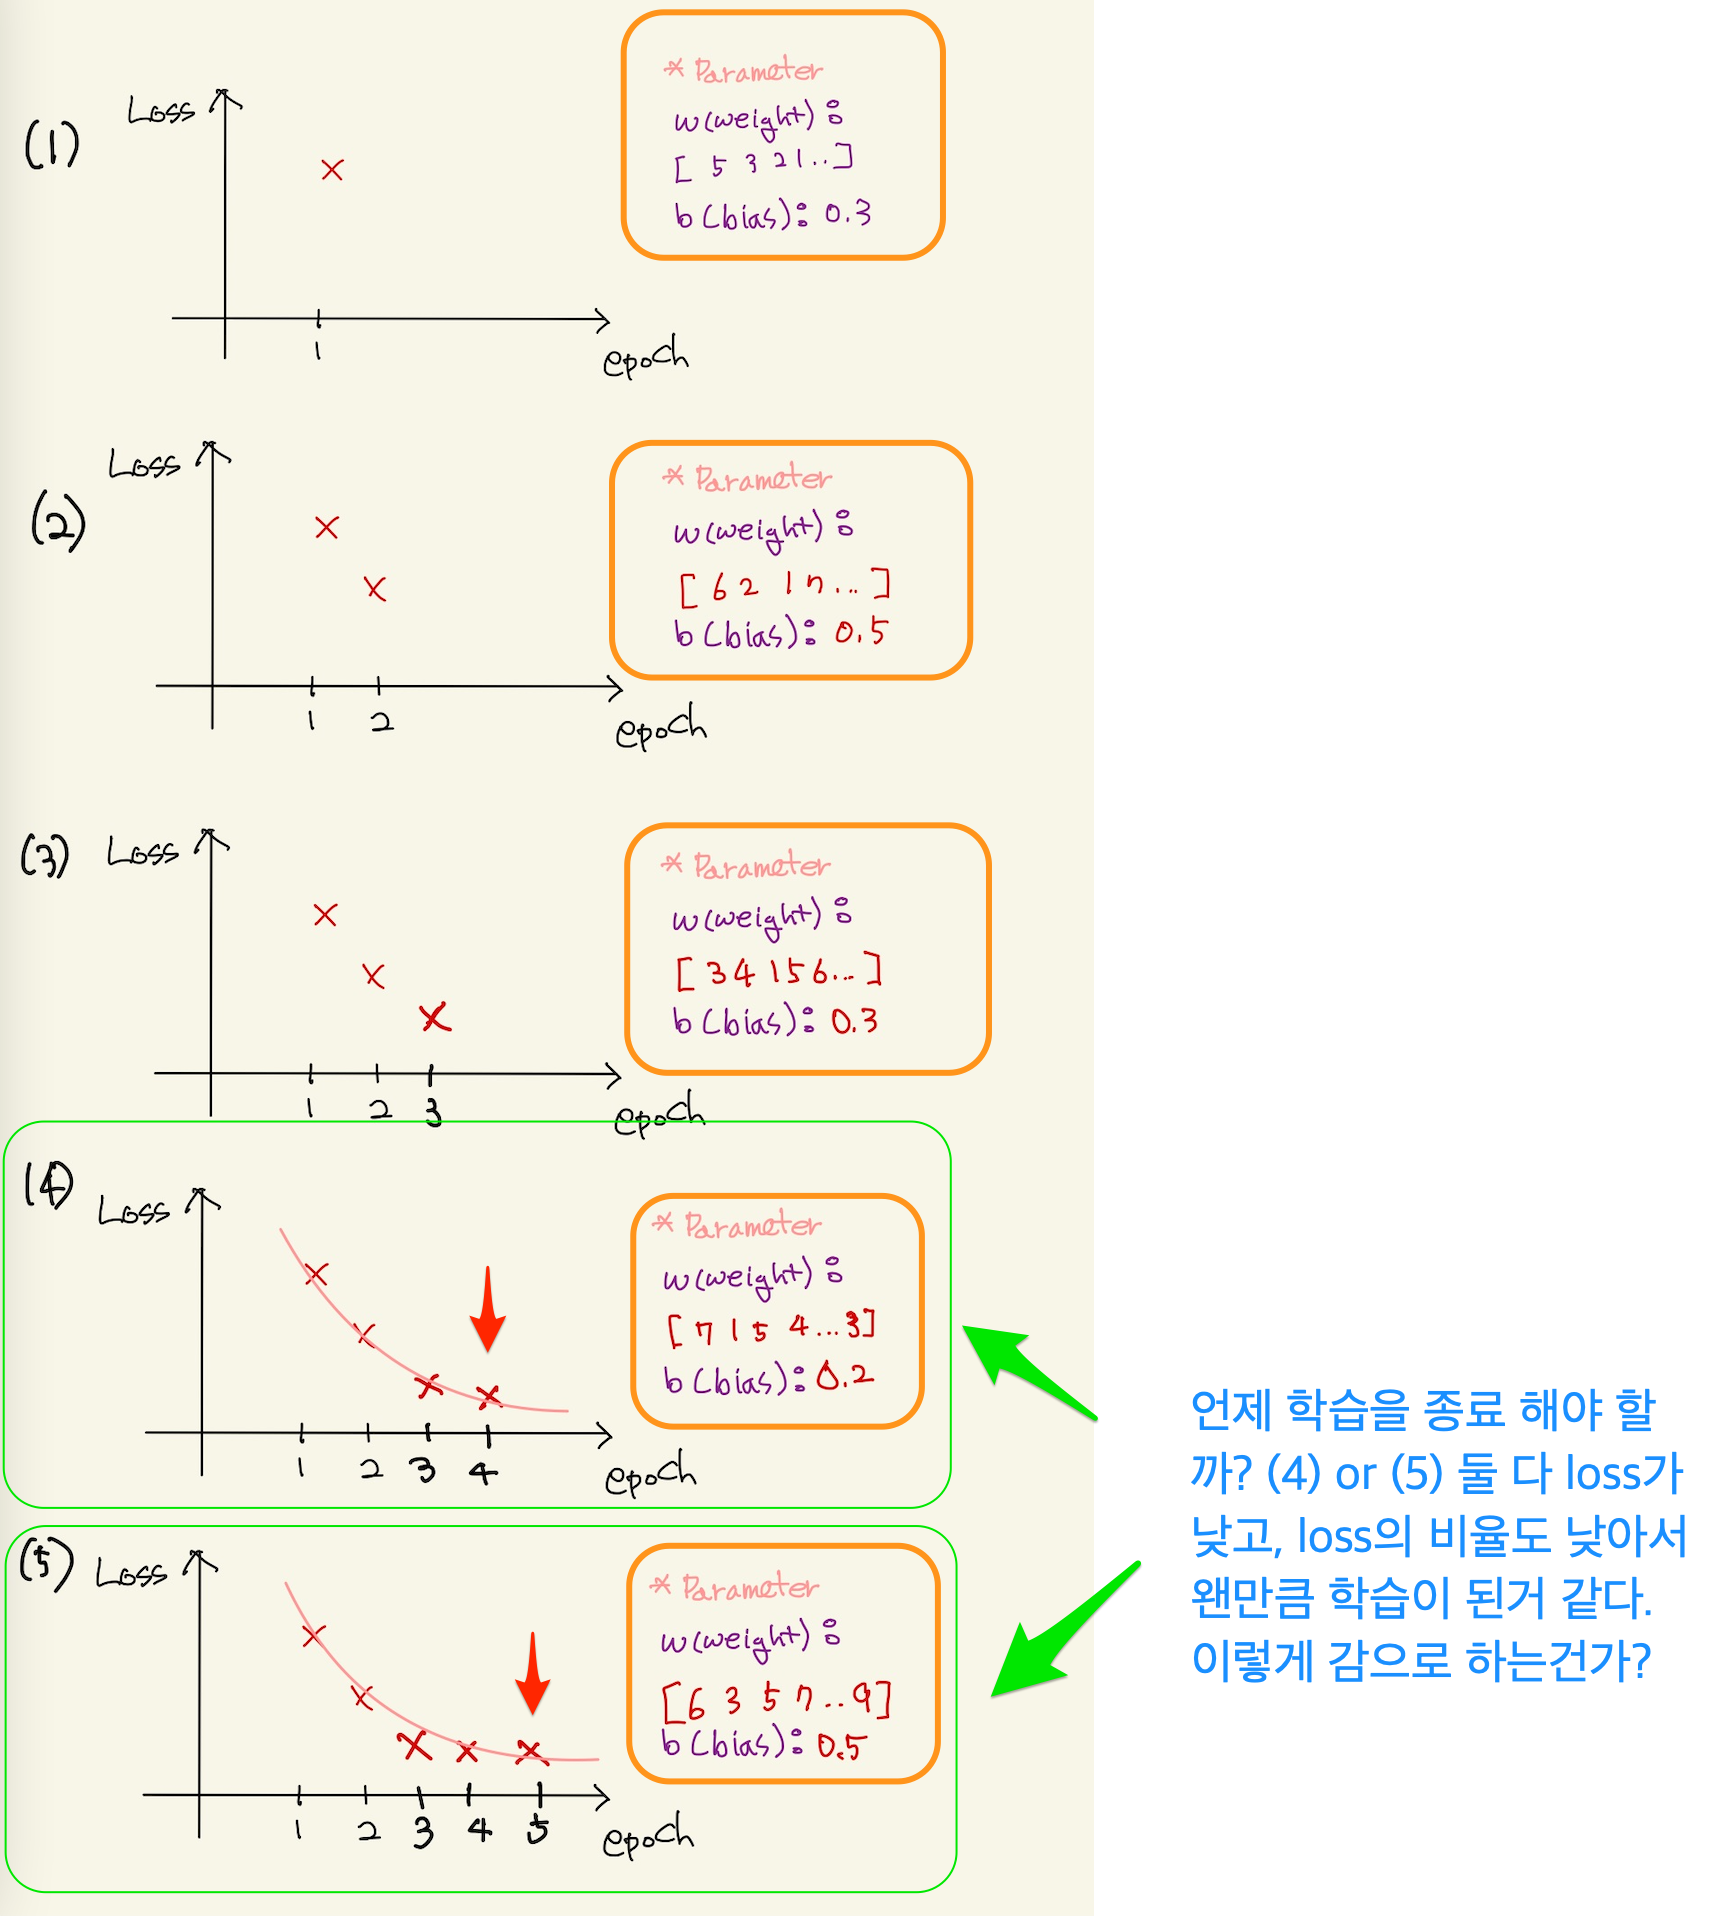 (1)
Loss
1
epoch
* Parameter
w(weight) :
[ 5 3 2 1 .. ]
b(bias): 0.3
(2)
Loss
1 2
epoch
* Parameter
w(weight) :
[ 6 2 1 7 ... ]
b(bias): 0.5
(3)
Loss
1 2 3
epoch
* Parameter
w(weight) :
[ 3 4 1 5 6 ... ]
b(bias): 0.3
(4)
Loss
1 2 3 4
epoch
* Parameter
w(weight) :
[ 7 1 5 4 ... 3 ]
b(bias): 0.2
(5)
Loss
1 2 3 4 5
epoch
* Parameter
w(weight) :
[ 6 3 5 7 .. 9 ]
b(bias): 0.5
언제 학습을 종료 해야 할
까? (4) or (5) 둘 다 loss가
낮고, loss의 비율도 낮아서
왠만큼 학습이 된거 같다.
이렇게 감으로 하는건가?